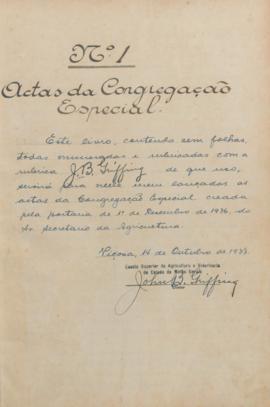 Nº 1
Actas da Congregação
Especial.
Este livro, contendo cem folhas,
todas numeradas e rubricadas com a
rubrica J.B. Griffing de que uso,
servirá para nelle serem lançadas as
actas da Congregação Especial creada
pela portaria de 1º de Dezembro de 1936, do
Sr. Secretario da Agricultura.
Viçosa, 14 de Outubro de 1937.
Escola Superior de Agricultura e Veterinaria
do Estado de Minas Geraes
John B. Griffing